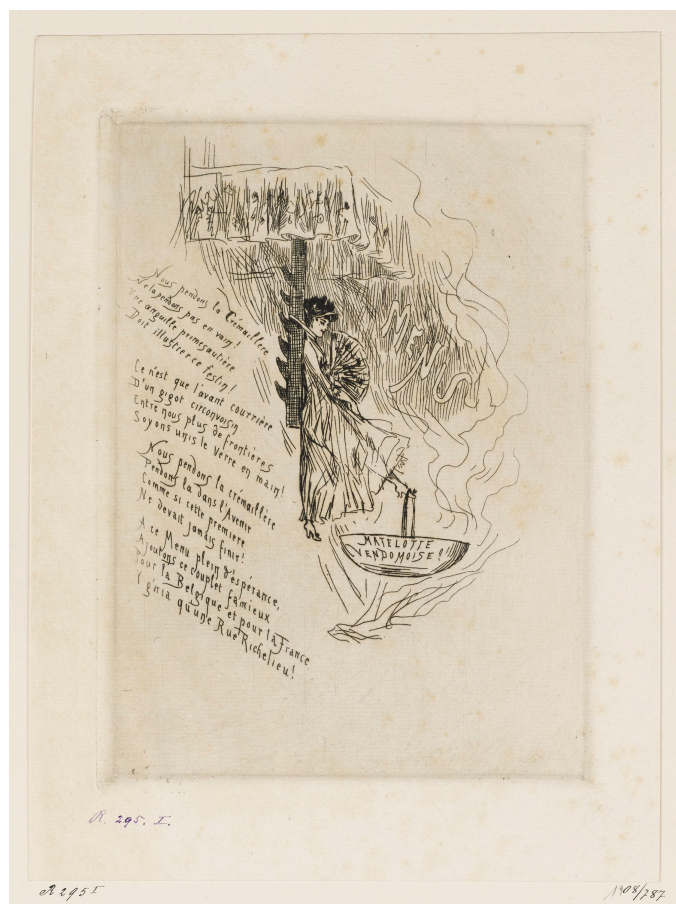 Nous pendons la Crémaillère
Ne la pendons pas en vain!
Une anguille primesautière
Doit illustrer ce festin!
Ce n'est que l'avant courrière
D'un gigot circonvoisin
Entre nous plus de frontières
Soyons unis le verre en main!
Nous pendons la crémaillère
Pendons la dans l'Avenir
Comme si cette première
Ne devait jamais finir!
A ce Menu plein d'espérance,
Ajoutons ce couplet fameux
Pour la Belgique et pour la France
I gnia qu'une Rue Richelieu!
MATELOTTE
VENDOMOISE!
R. 295. I.
R 295 I
1908/287